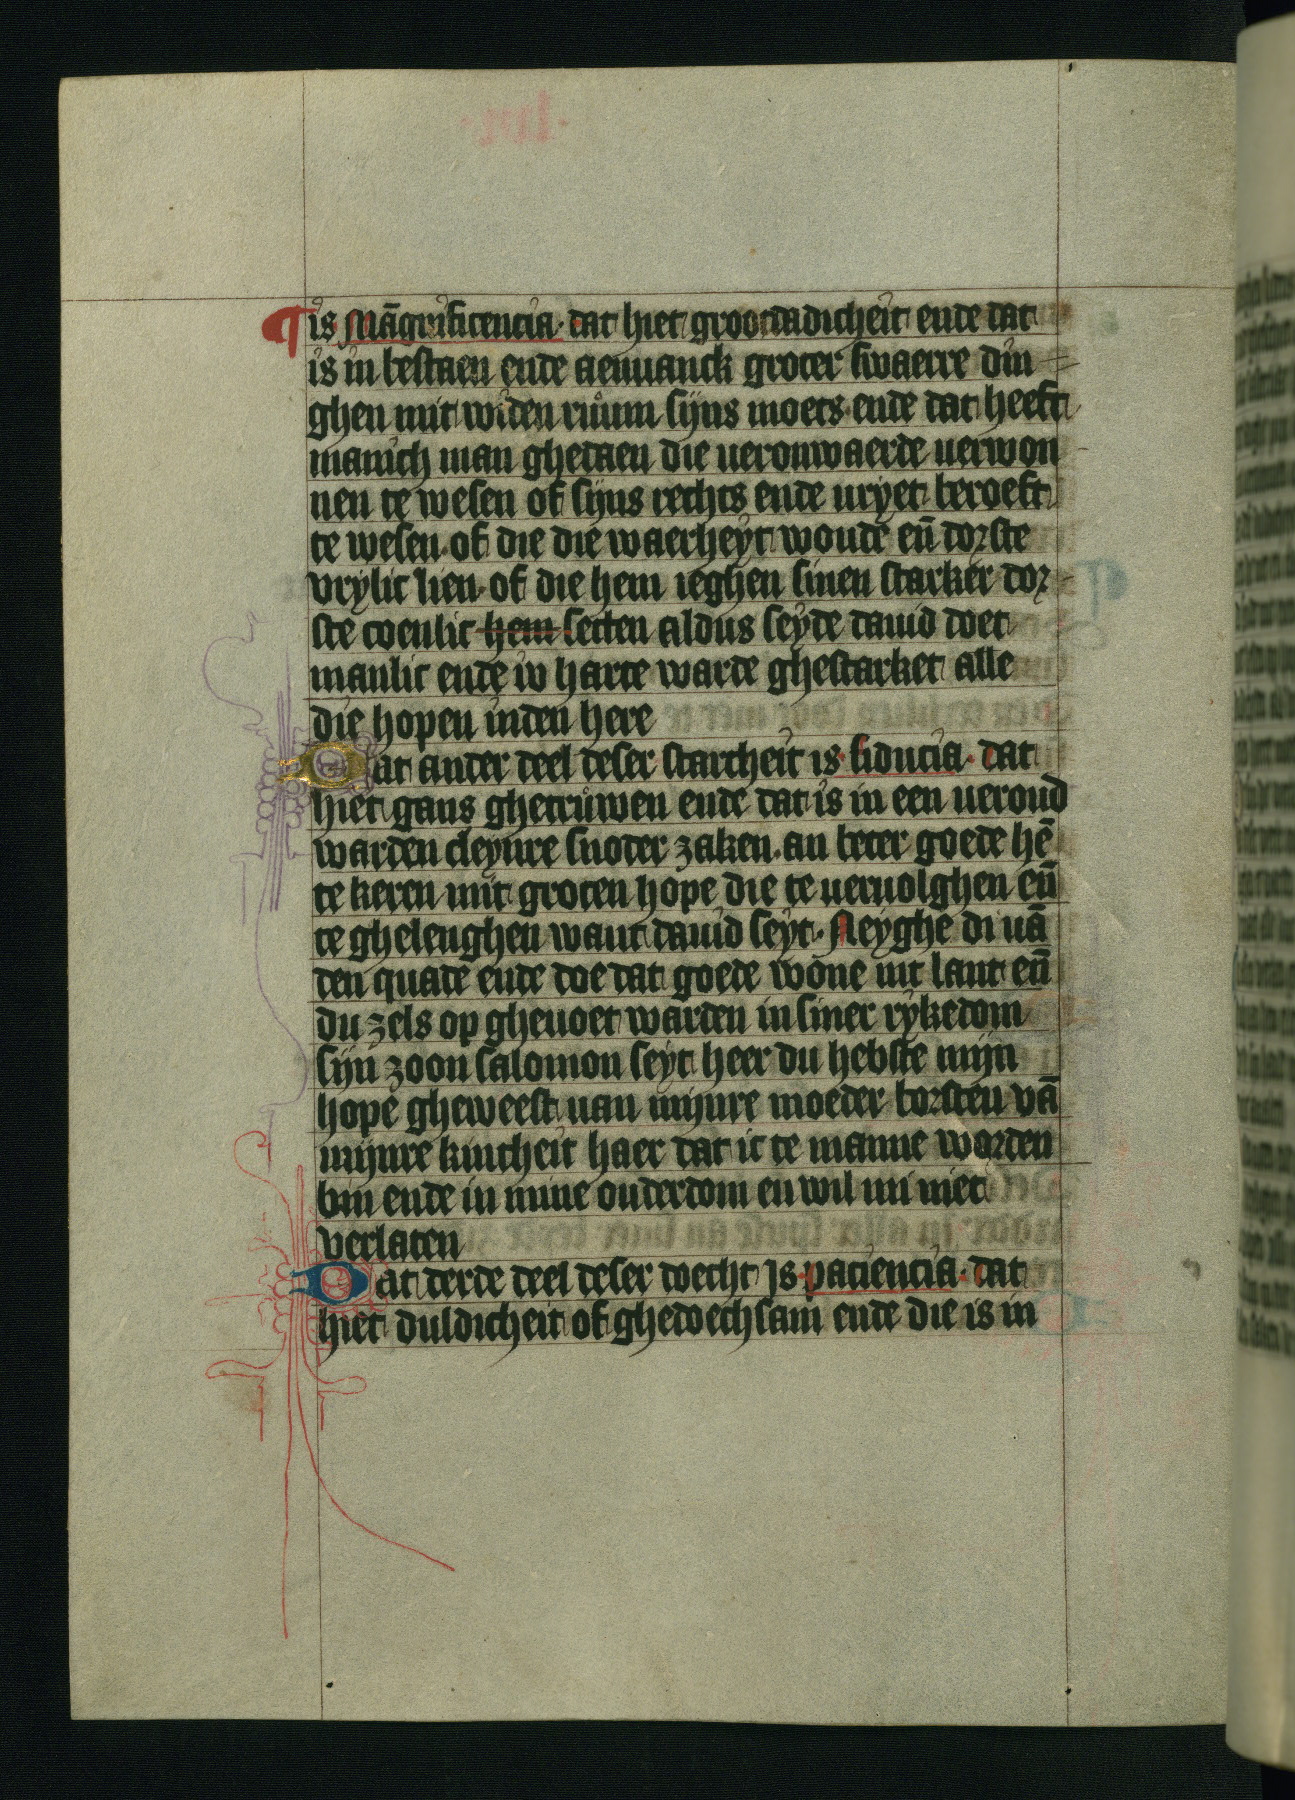 ¶ is Mãgnificencia· dat hiet grootdadicheit ende dat
is in bestaen ende aenuanck groter swaerre din
ghen mit widen ruum sijns moets· ende dat heeft
manich man ghedaen die veronwaerde verwon
nen te wesen of sijns rechts ende vryet beroeft
te wesen· of die die waerheyt woude eñ dorste
vrylic lien· of die hem ieghen sinen starker dor
ste coenlic hem setten aldus seyde dauid doet
manlic ende iv harte warde ghestarket alle
die hopen inden here
Dat ander deel deser starcheit is· fiducia· dat
hiet gans ghetruwen ende dat is in een veroud
warden cleynre snoder zaken· an beter goede hē
te keren mit groten hope die te vervolghen eñ
te ghelenghen want dauid seyt· Neyghe di vā
den quade ende doe dat goede wone int lant eñ
du zels op ghevoet warden in siner rykedom
sijn zoon salomon seyt heer du hebste mijn
hope gheweest van mijnre moeder borsten vā
mijnre kintheit haer dat ic te manne worden
bin ende in mine ouderdom en wil mi niet
verlaten
Dat derde deel deser doecht Js· paciencia· dat
hiet duldicheit of ghedoechsam ende die is in